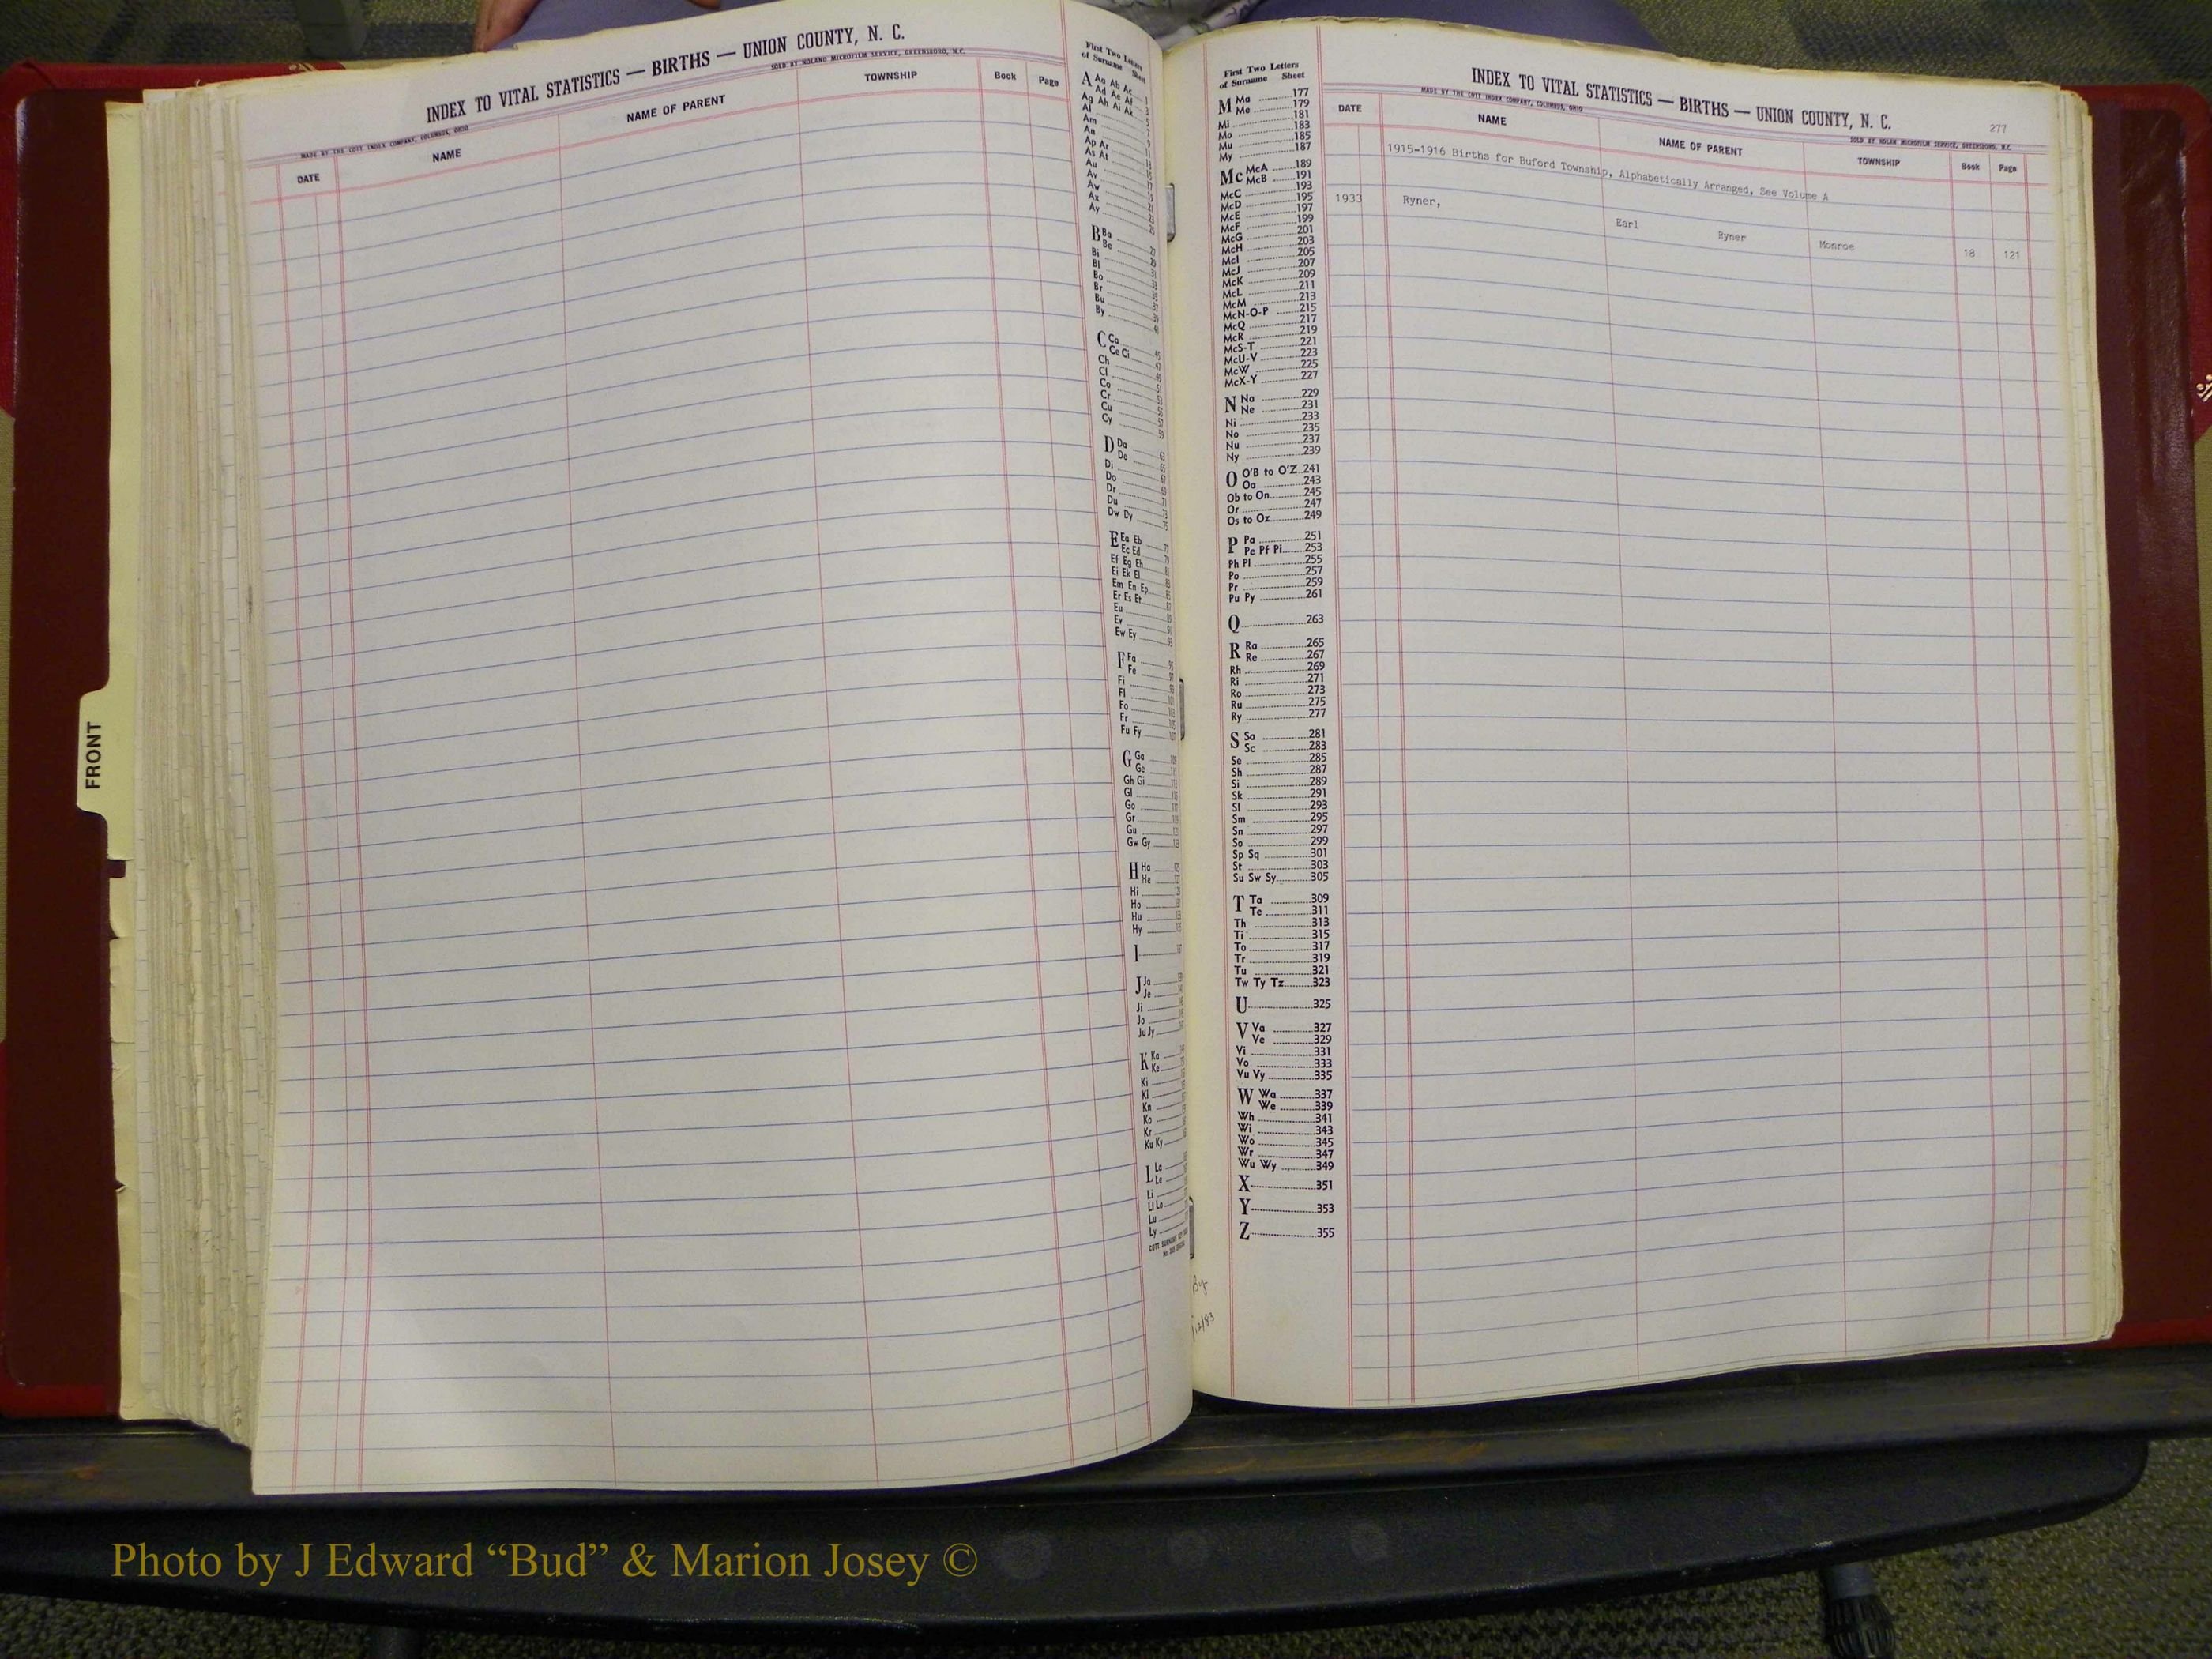 INDEX TO VITAL STATISTICS — BIRTHS — UNION COUNTY, N. C.
MADE BY THE COTT INDEX COMPANY, COLUMBUS, OHIO
SOLD BY NOLAND MICROFILM SERVICE, GREENSBORO, N.C.
DATE NAME NAME OF PARENT TOWNSHIP Book Page
First Two Letters
of Surname Sheet
A Aa Ab Ac
Ad Ae Af
Ag Ah Ai Ak
Al
Am
An
Ap Ar
As At
Au
Av
Aw
Ax
Ay
B Ba
Be
Bi
Bl
Bo
Br
Bu
By
C Ca
Ce Ci
Ch
Cl
Co
Cr
Cu
Cy
D Da
De
Di
Do
Dr
Du
Dw Dy
E Ea Eb
Ec Ed
Ef Eg Eh
Ei Ek El
Em En Ep
Er Es Et
Eu
Ev
Ew Ey
F Fa
Fe
Fi
Fl
Fo
Fr
Fu Fy
G Ga
Ge
Gh Gi
Gl
Go
Gr
Gu
Gw Gy
H Ha
He
Hi
Ho
Hu
Hy
I
J Ja
Je
Ji
Jo
Ju Jy
K Ka
Ke
Ki
Kl
Kn
Ko
Kr
Ku Ky
L La
Le
Li
Ll Lo
Lu
Ly
By
FRONT
First Two Letters
of Surname Sheet
M Ma 177
Me 179
Mi 181
Mo 183
Mu 185
My 187
Mc McA 189
McB 191
McC 193
McD 195
McE 197
McF 199
McG 201
McH 203
McI 205
McJ 207
McK 209
McL 211
McM 213
McN-O-P 215
McQ 217
McR 219
McS-T 221
McU-V 223
McW 225
McX-Y 227
N Na 229
Ne 231
Ni 233
No 235
Nu 237
Ny 239
O O'B to O'Z 241
Oa 243
Ob to On 245
Or 247
Os to Oz 249
P Pa 251
Pe Pf Pi 253
Ph Pl 255
Po 257
Pr 259
Pu Py 261
Q 263
R Ra 265
Re 267
Rh 269
Ri 271
Ro 273
Ru 275
Ry 277
S Sa 281
Sc 283
Se 285
Sh 287
Si 289
Sk 291
Sl 293
Sm 295
Sn 297
So 299
Sp Sq 301
St 303
Su Sw Sy 305
T Ta 309
Te 311
Th 313
Ti 315
To 317
Tr 319
Tu 321
Tw Ty Tz 323
U 325
V Va 327
Ve 329
Vi 331
Vo 333
Vu Vy 335
W Wa 337
We 339
Wh 341
Wi 343
Wo 345
Wr 347
Wu Wy 349
X 351
Y 353
Z 355
INDEX TO VITAL STATISTICS — BIRTHS — UNION COUNTY, N. C.
277
MADE BY THE COTT INDEX COMPANY, COLUMBUS, OHIO
SOLD BY NOLAN MICROFILM SERVICE, GREENSBORO, N.C.
DATE NAME NAME OF PARENT TOWNSHIP Book Page
1915-1916 Births for Buford Township, Alphabetically Arranged, See Volume A
1933 Ryner, Earl Ryner Monroe 18 121
Photo by J Edward “Bud” & Marion Josey ©